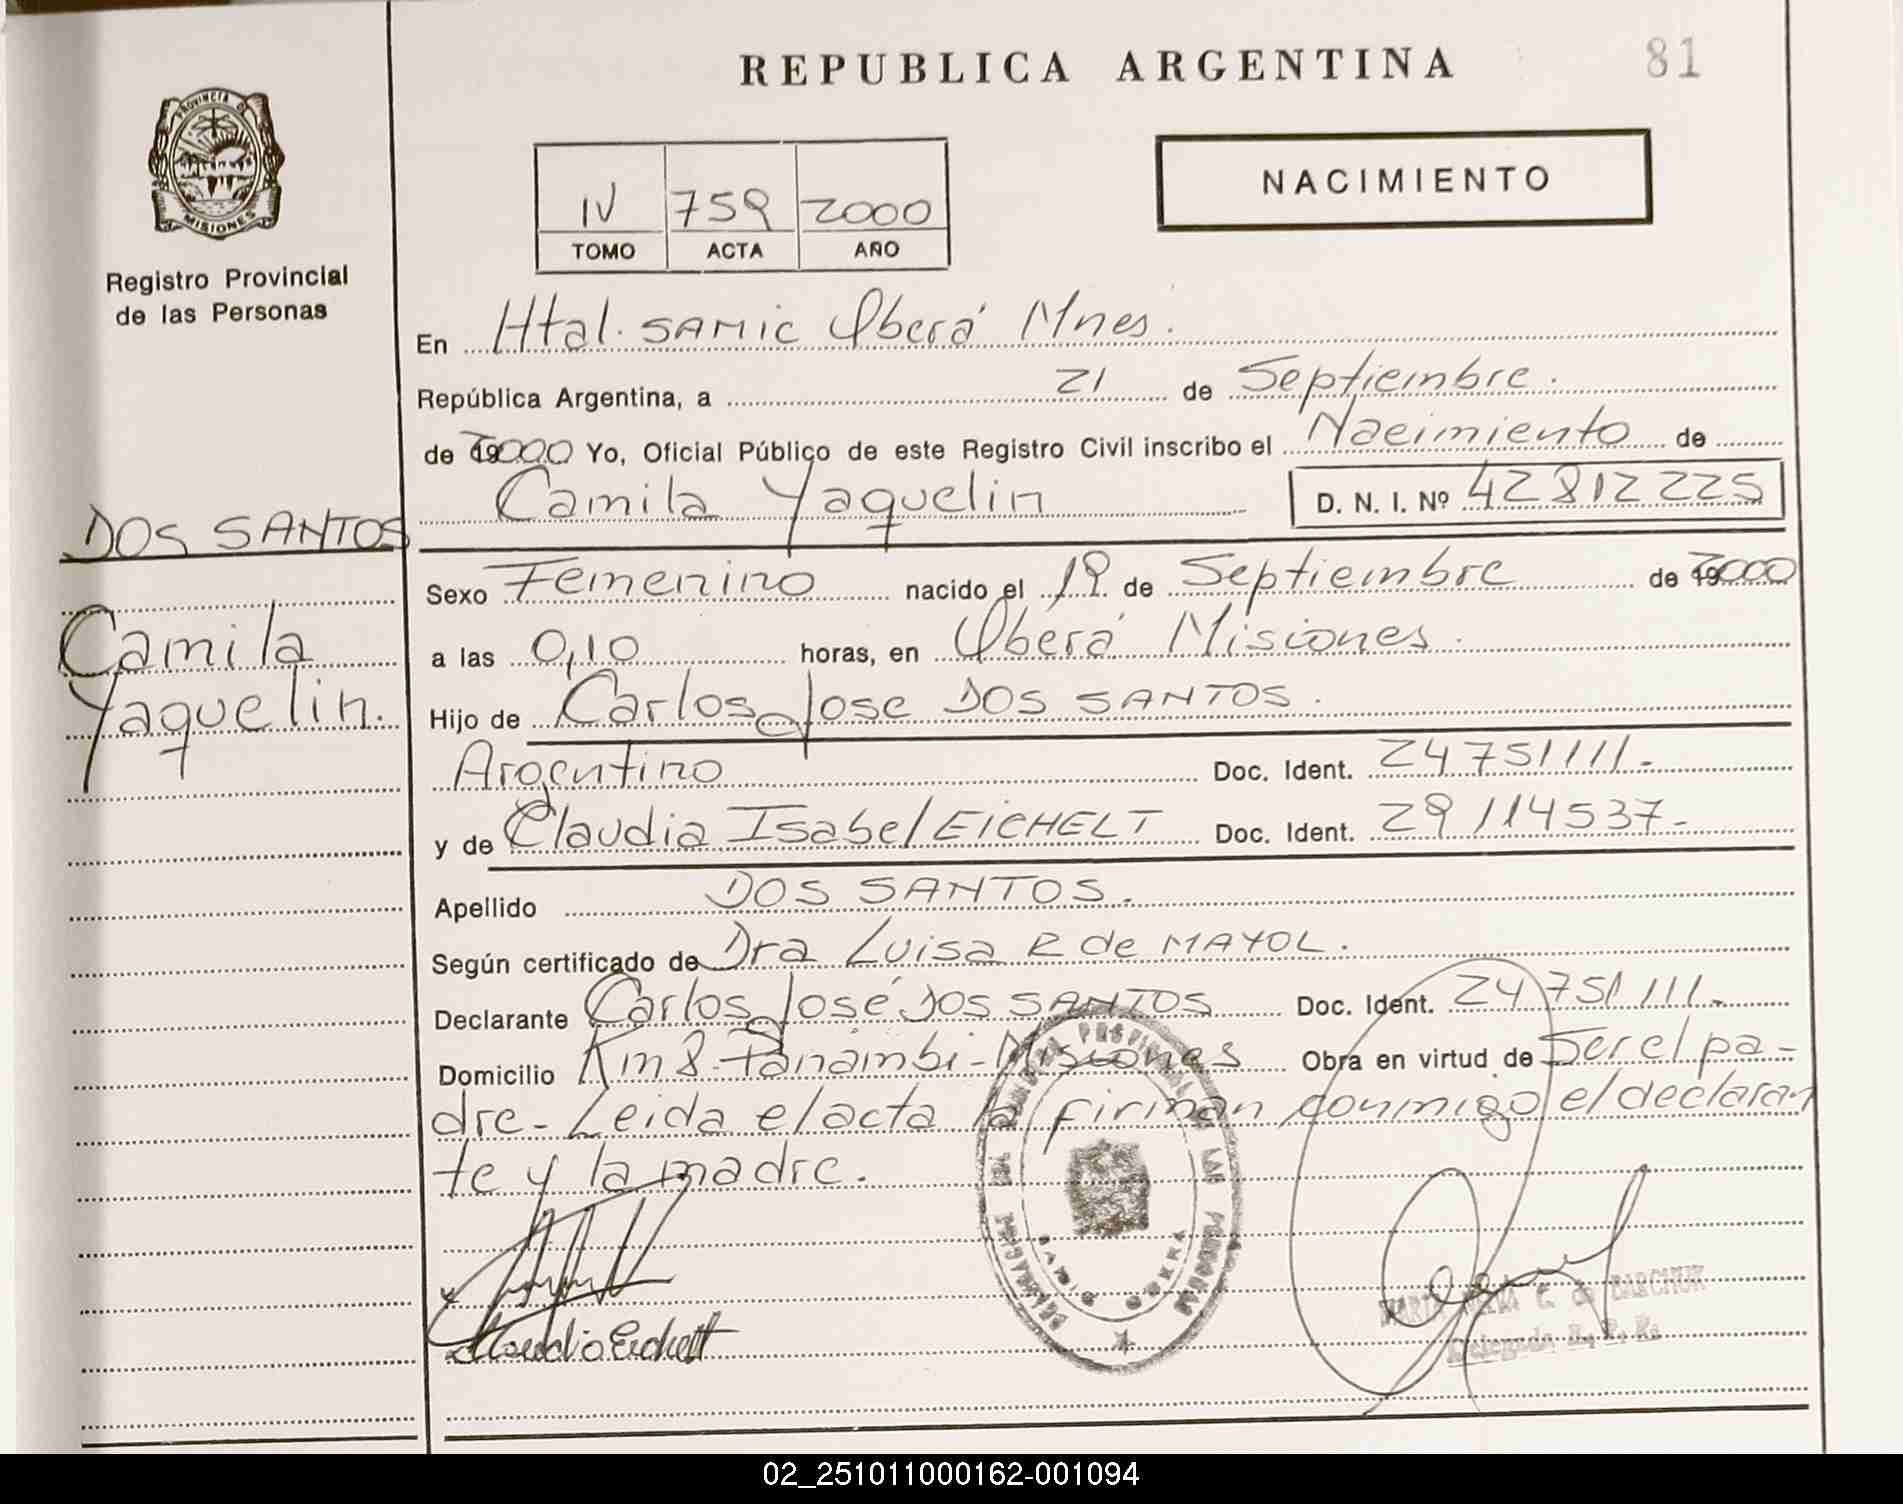 REPUBLICA ARGENTINA
81
PROVINCIA DE
MISIONES
Registro Provincial
de las Personas
IV 759 2000
TOMO ACTA AÑO
NACIMIENTO
En Htal. SAMIC Oberá Mnes.
República Argentina, a 21 de Septiembre.
de 2000 Yo, Oficial Público de este Registro Civil inscribo el Nacimiento de
Camila Yaquelin D. N. I. Nº 42812225
DOS SANTOS
Camila
Yaquelin.
Sexo Femenino nacido el 19 de Septiembre de 2000
a las 0,10 horas, en Oberá Misiones.
Hijo de Carlos Jose DOS SANTOS.
Argentino Doc. Ident. 24751111.-
y de Claudia Isabel EICHELT Doc. Ident. 29114537-
Apellido DOS SANTOS.
Según certificado de Dra Luisa R de MAYOL.
Declarante Carlos José DOS SANTOS Doc. Ident. 24751111.-
Domicilio Km 8-Panambi-Misiones Obra en virtud de Ser el pa-
dre- Leida el acta la firman conmigo el declaran
te y la madre.
Claudia Eichelt
Delegada R. P. P.
02_251011000162-001094